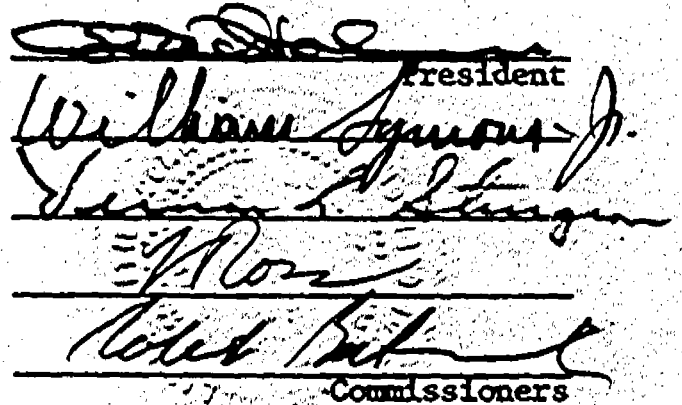 President
William Symons Jr.
Vernon L. Sturgeon
Ross
Robert
Commissioners